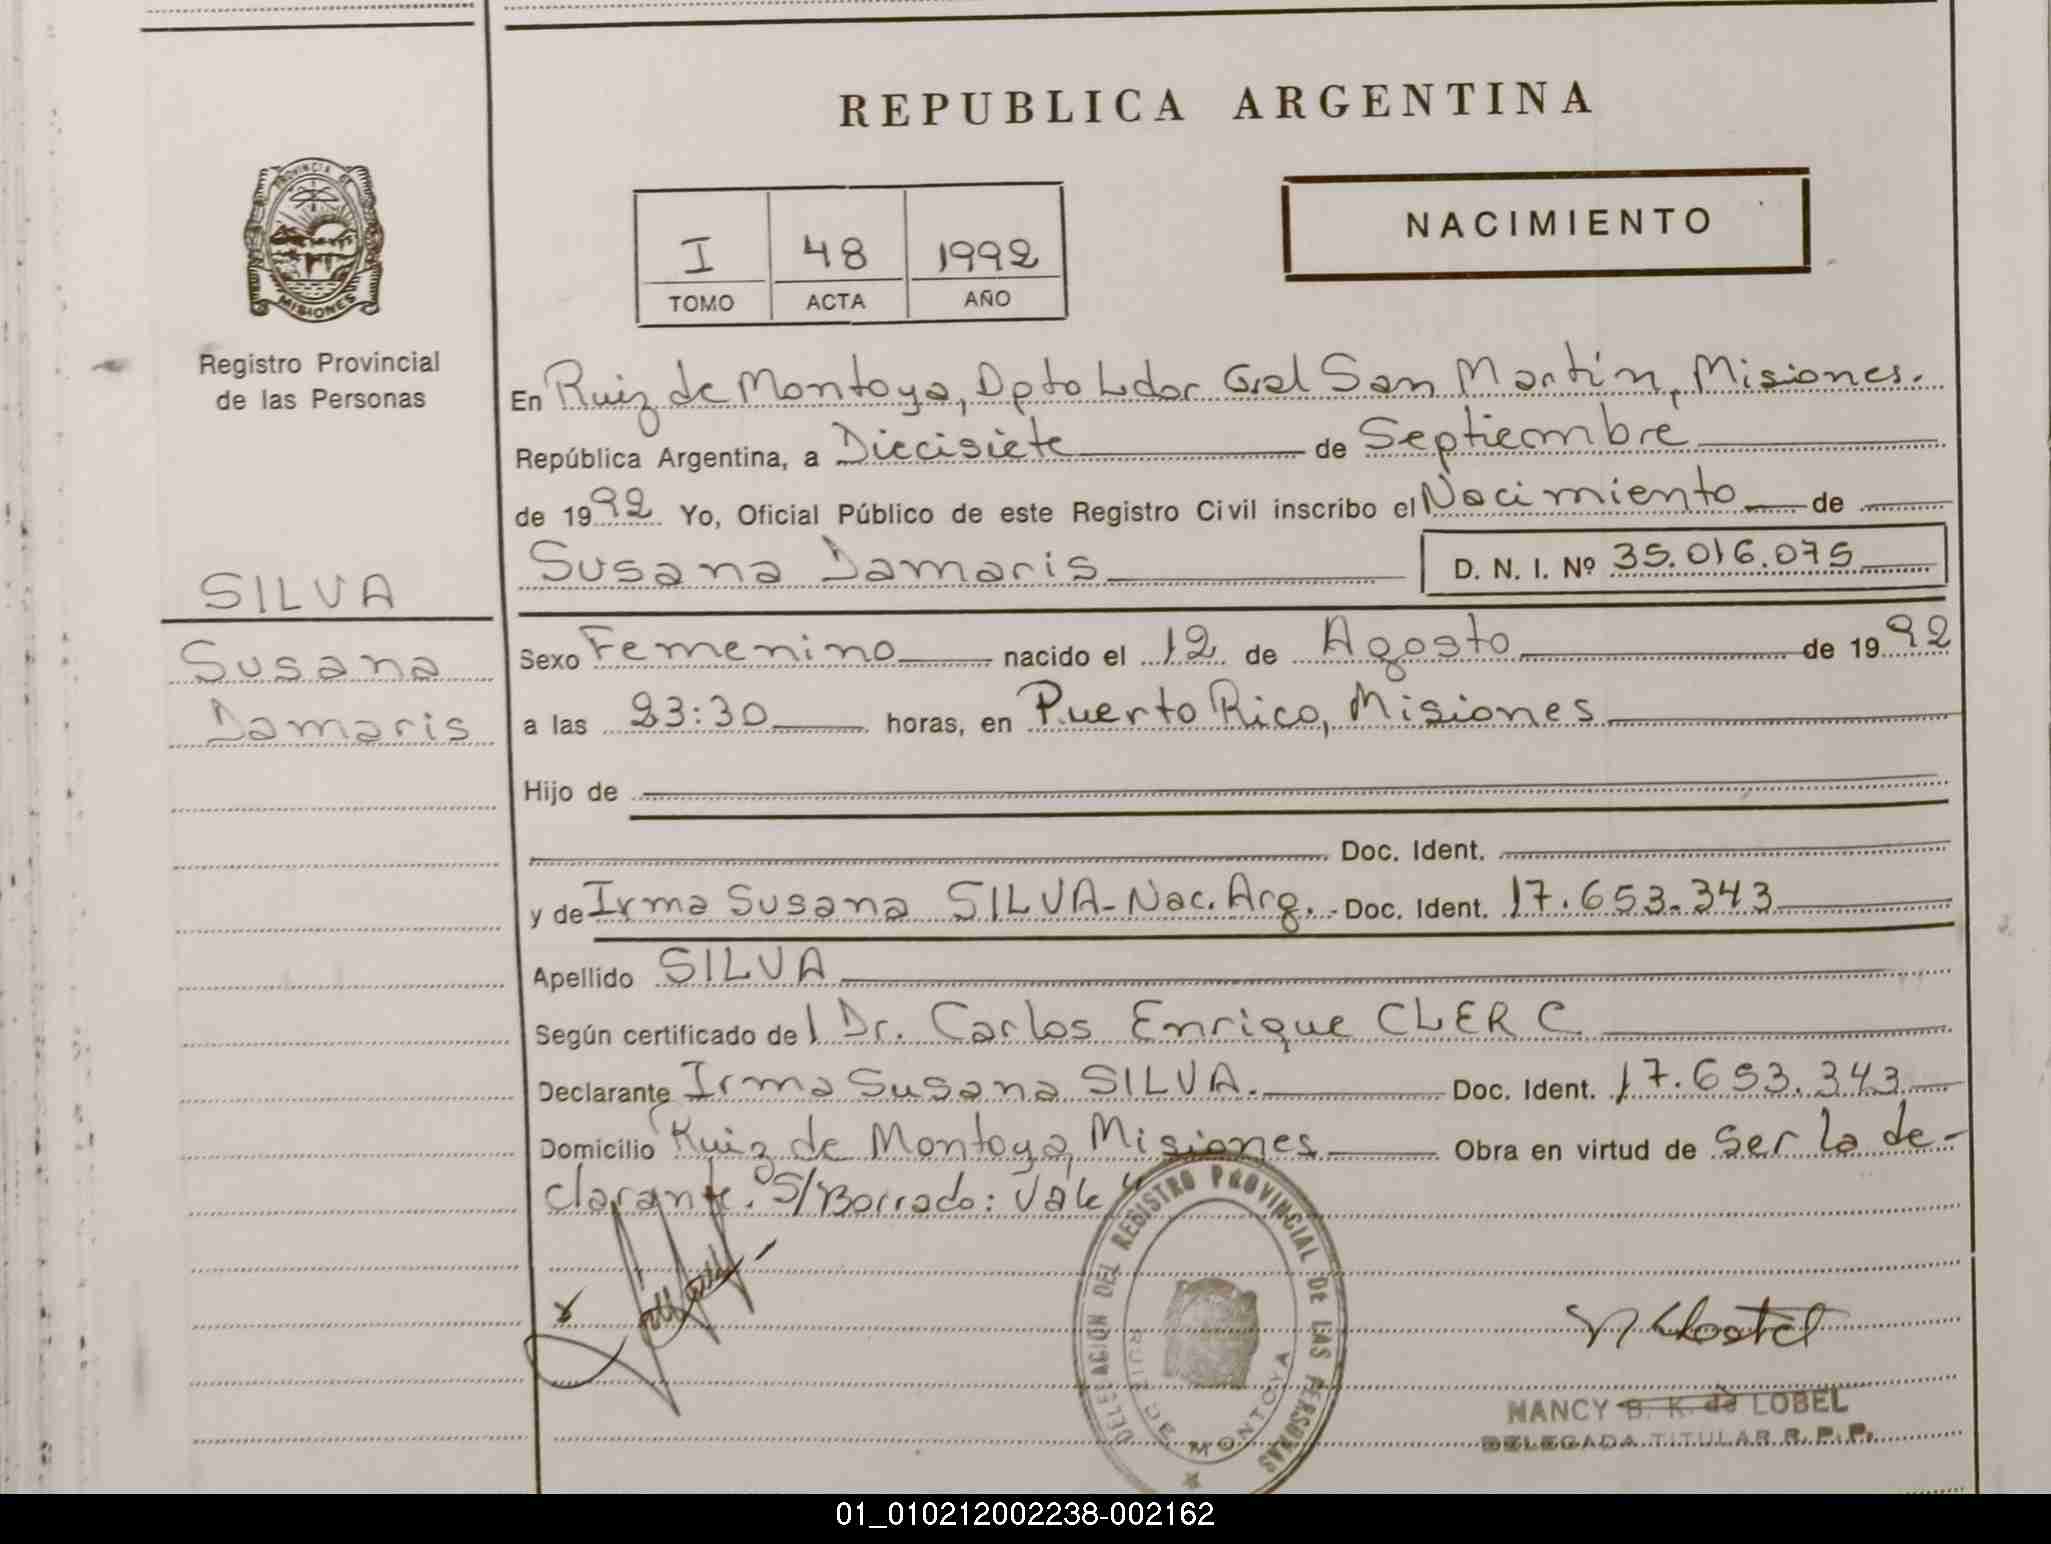 REPUBLICA ARGENTINA
PROVINCIA DE MISIONES
Registro Provincial
de las Personas
I 48 1992
TOMO ACTA AÑO
NACIMIENTO
En Ruiz de Montoya, Dpto Ldor Gral San Martín, Misiones.
República Argentina, a Diecisiete de Septiembre
de 1992 Yo, Oficial Público de este Registro Civil inscribo el Nacimiento de
Susana Damaris D. N. I. Nº 35.016.075
SILVA
Susana
Damaris
Sexo Femenino nacido el 12 de Agosto de 1992
a las 23:30 horas, en Puerto Rico, Misiones
Hijo de
Doc. Ident.
y de Irma Susana SILVA-Nac. Arg. - Doc. Ident. 17.653.343
Apellido SILVA
Según certificado del Dr. Carlos Enrique CLERC
Declarante Irma Susana SILVA. Doc. Ident. 17.653.343
Domicilio Ruiz de Montoya, Misiones Obra en virtud de ser la de-
clarante. "S/Borrado: Vale"
DELEGACION DEL REGISTRO PROVINCIAL DE LAS PERSONAS
RUIZ DE MONTOYA
NANCY B. K. de LOBEL
DELEGADA TITULAR R. P. P.
01_010212002238-002162